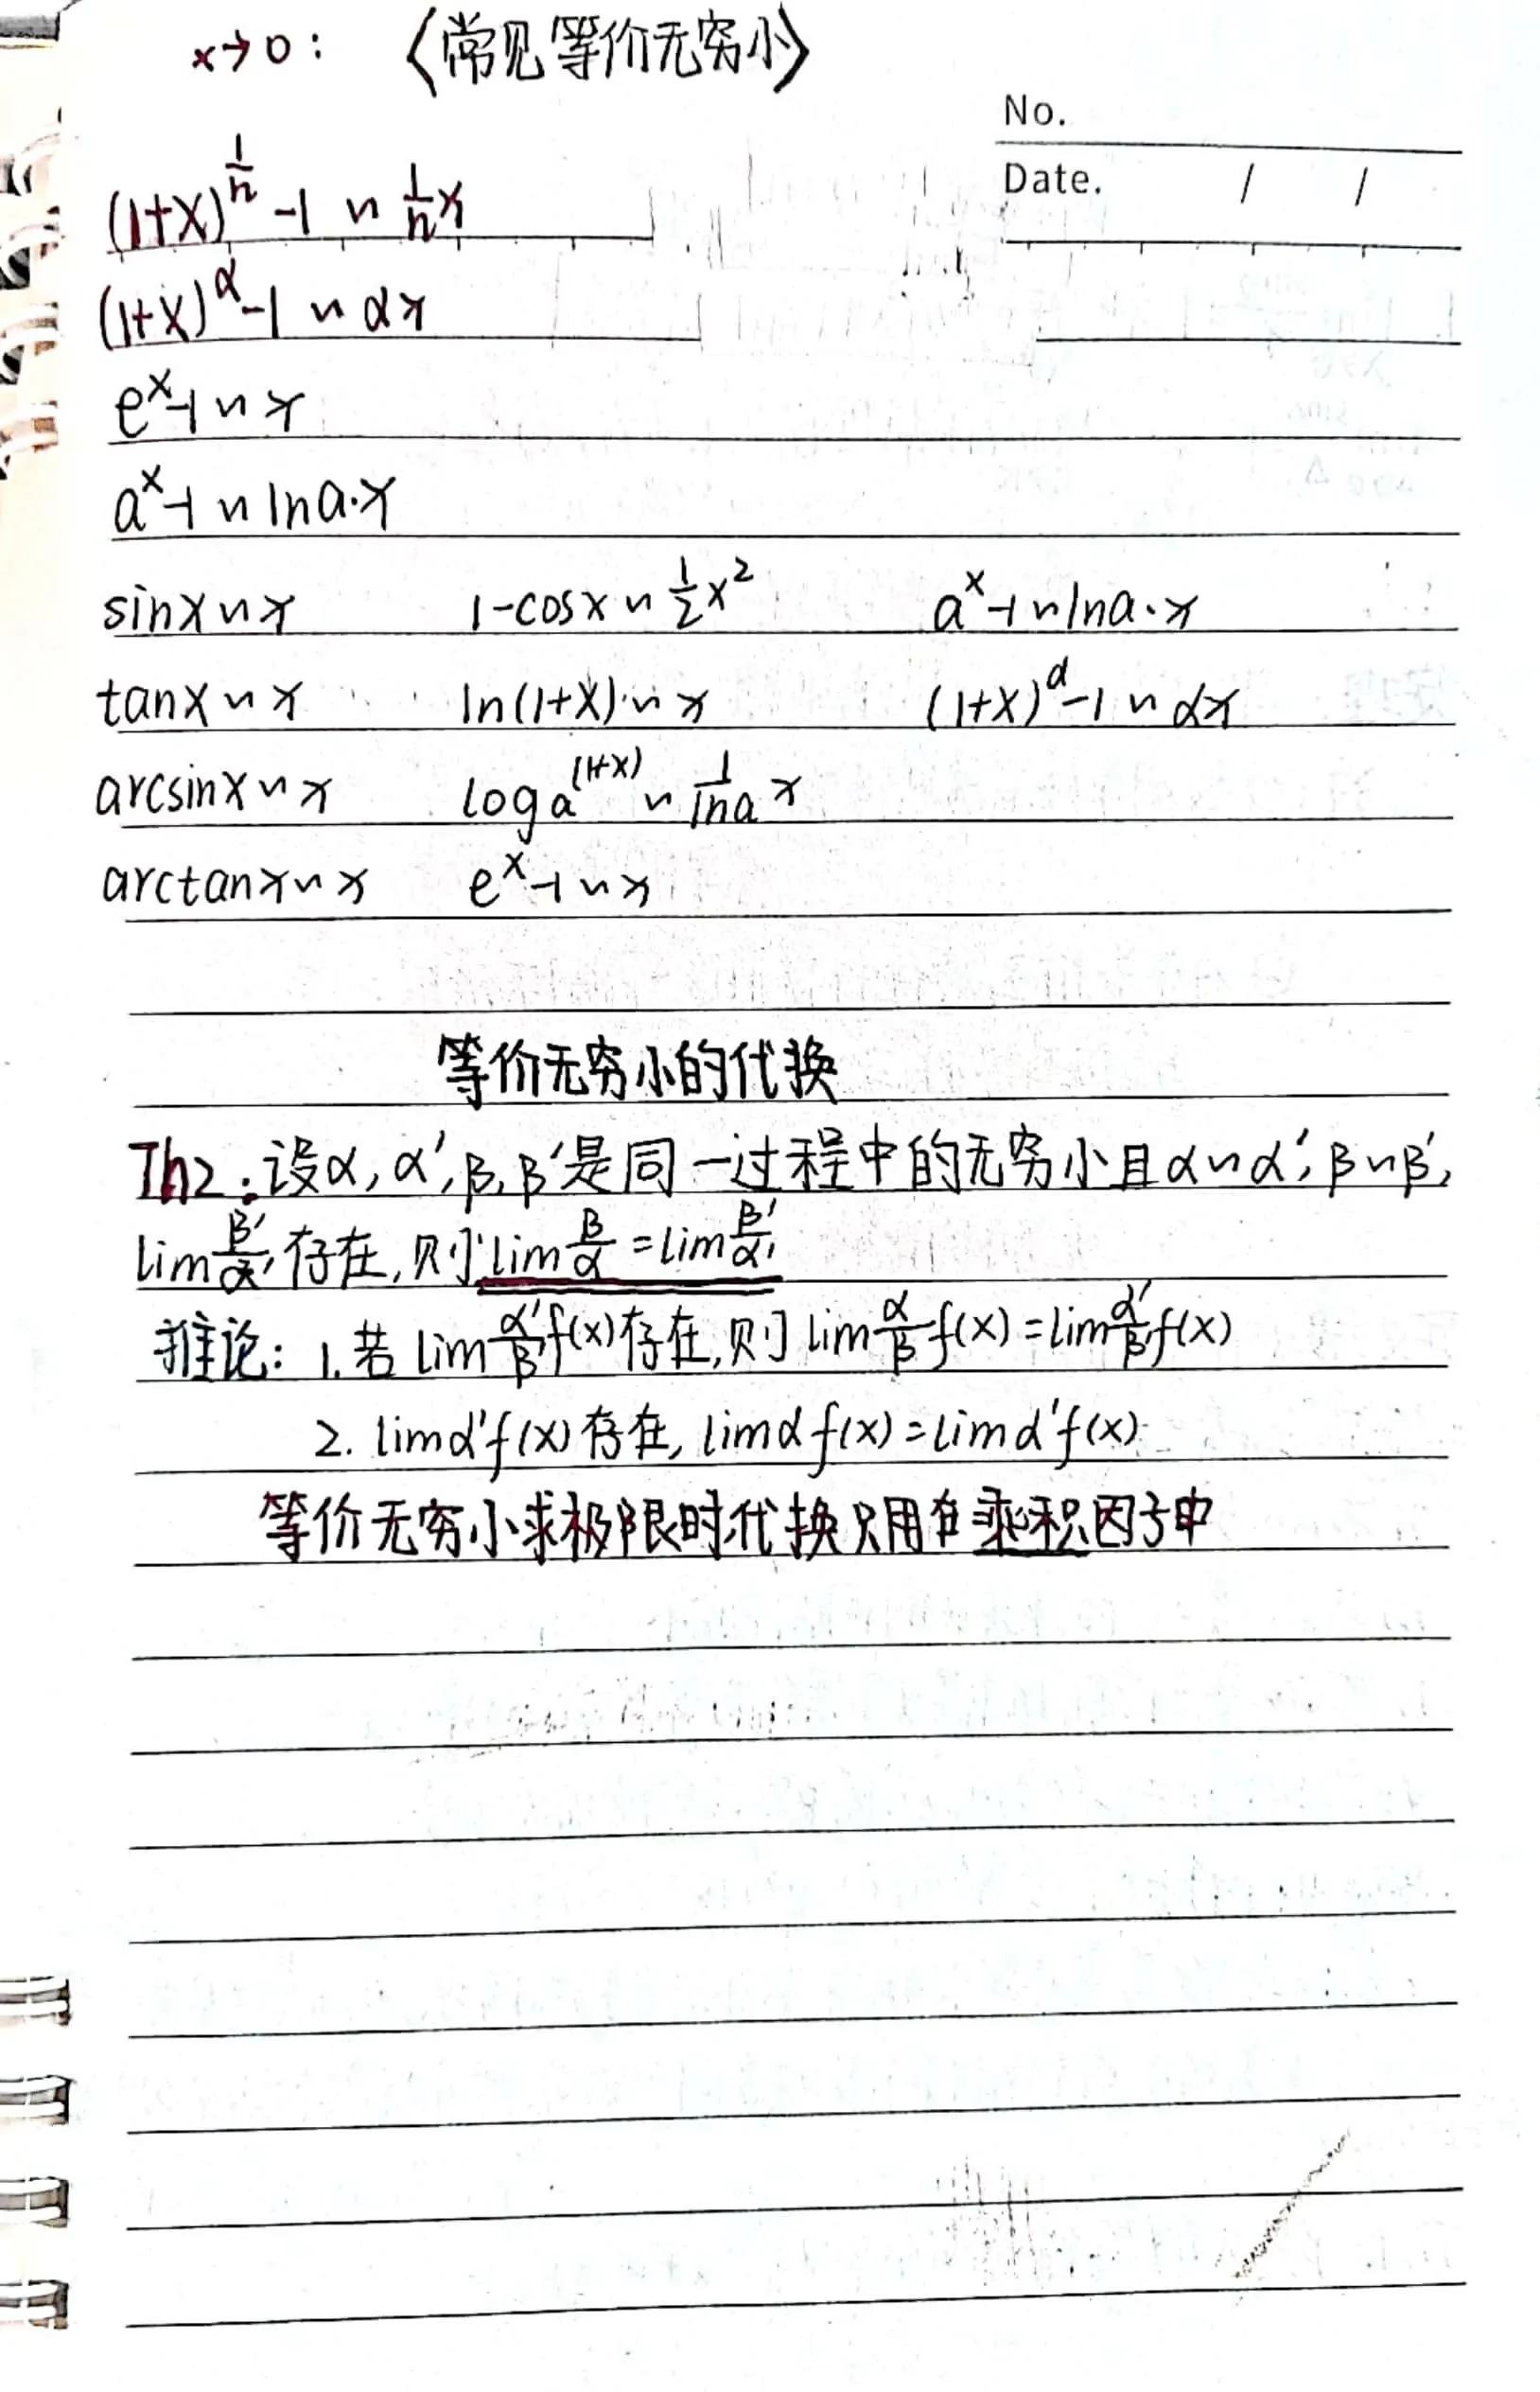 x→0: 〈常见等价无穷小〉
No.
Date. / /
(1+x)^{\frac{1}{n}}-1 ~ \frac{1}{n}x
(1+x)^α-1 ~ αx
e^x-1 ~ x
a^x-1 ~ lna·x
sinx ~ x 1-cosx ~ \frac{1}{2}x^2 a^x-1 ~ lna·x
tanx ~ x ln(1+x) ~ x (1+x)^α-1 ~ αx
arcsinx ~ x log a^{(1+x)} ~ \frac{1}{lna}x
arctanx ~ x e^x-1 ~ x
等价无穷小的代换
Th2:设α,α',β,β'是同一过程中的无穷小且α~α',β~β',
lim\frac{β'}{α'}存在,则lim\frac{β}{α}=lim\frac{β'}{α'}
推论: 1.若lim\frac{α'}{β'}f(x)存在,则lim\frac{α}{β}f(x)=lim\frac{α'}{β'}f(x)
2. limα'f(x)存在,limαf(x)=limα'f(x)
等价无穷小求极限时代换只用在乘积因子中